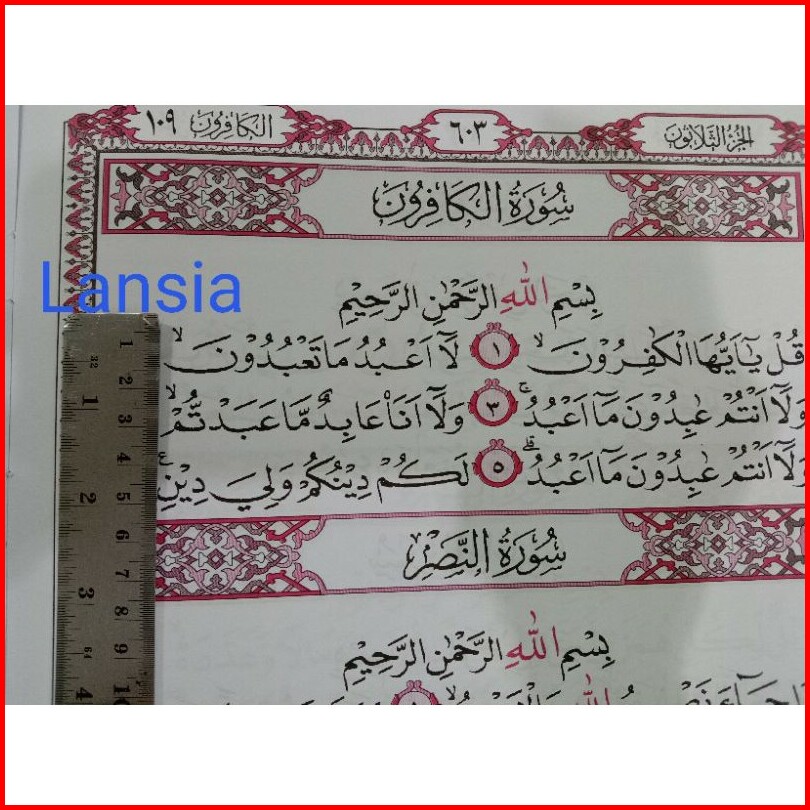 الجزء الثلاثون ٦٠٣ الكافرون ١٠٩
سُوْرَةُ الْكَافِرُوْنَ
Lansia
بِسْمِ اللّٰهِ الرَّحْمٰنِ الرَّحِيْمِ
قُلْ يٰٓاَيُّهَا الْكٰفِرُوْنَۙ ١ لَآ اَعْبُدُ مَا تَعْبُدُوْنَۙ
وَلَآ اَنْتُمْ عٰبِدُوْنَ مَآ اَعْبُدُۚ ٣ وَلَآ اَنَا۠ عَابِدٌ مَّا عَبَدْتُّمْۙ
وَلَآ اَنْتُمْ عٰبِدُوْنَ مَآ اَعْبُدُۗ ٥ لَكُمْ دِيْنُكُمْ وَلِيَ دِيْنِࣖ
سُوْرَةُ النَّصْرِ
بِسْمِ اللّٰهِ الرَّحْمٰنِ الرَّحِيْمِ
1 2 3 4 5 6 7 8 9 10
32 1 2 3 64 4